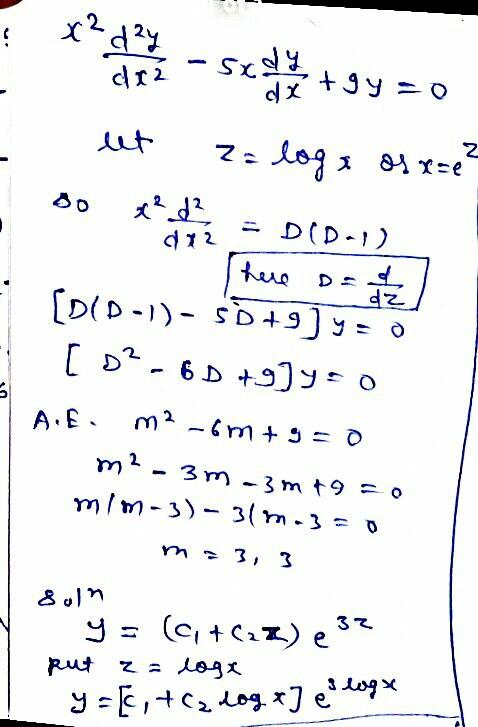 x² d²y/dx² - 5x dy/dx + 9y = 0
let z = log x or x=e^z
so x² d²/dx² = D(D-1)
here D = d/dz
[D(D-1) - 5D+9] y = 0
[D² - 6D +9] y = 0
A.E. m² - 6m + 9 = 0
m² - 3m - 3m +9 = 0
m(m-3) - 3(m-3 = 0
m = 3, 3
soln
y = (c₁ + c₂z) e^3z
put z = logx
y = [c₁ + c₂ log x] e^3logx